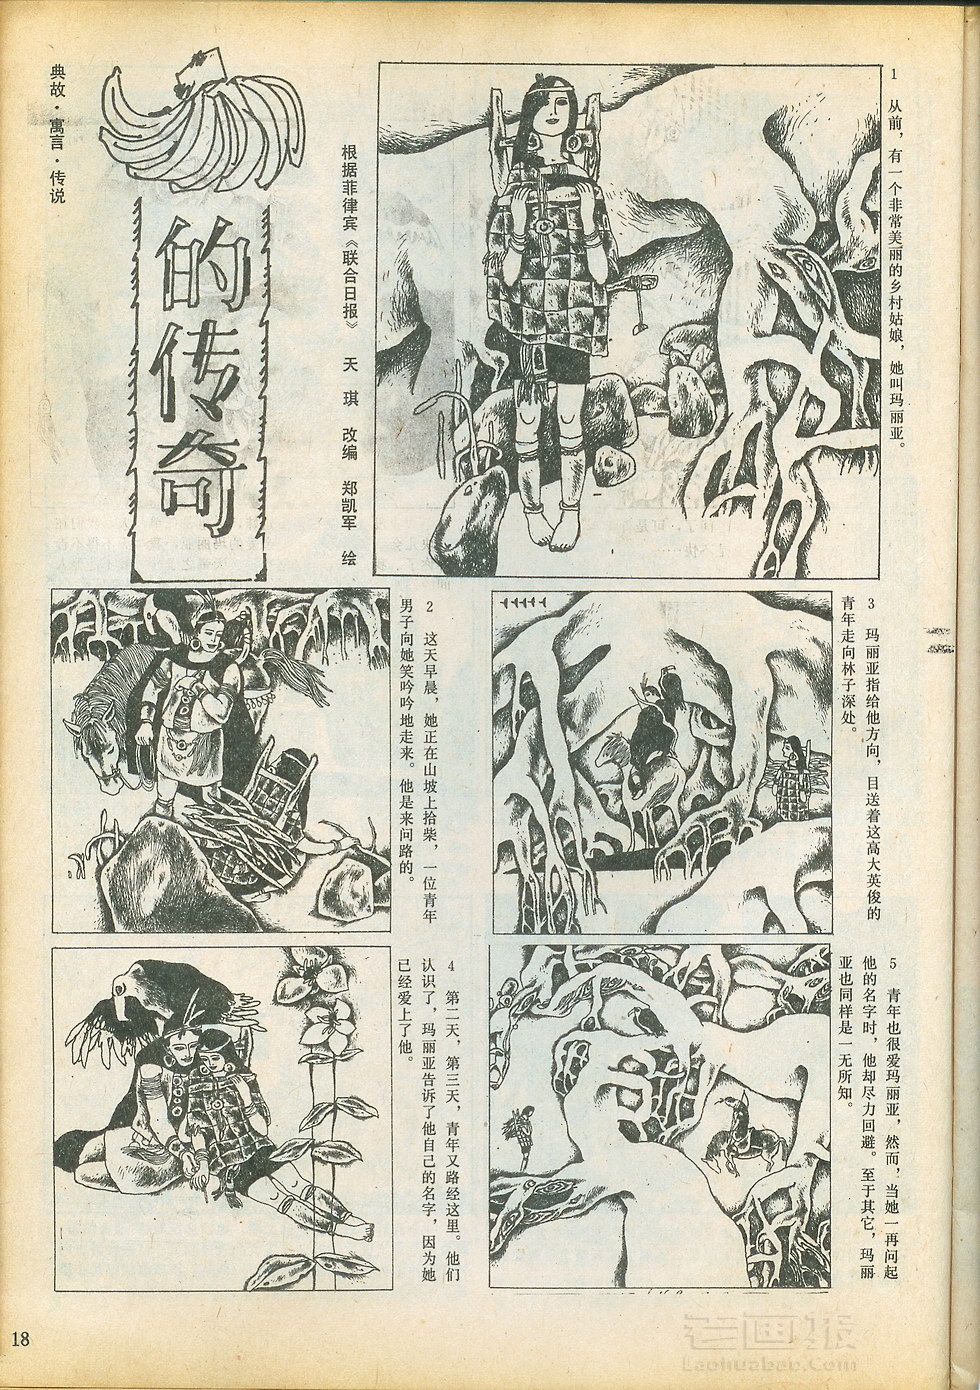 典故·寓言·传说
的传奇
根据菲律宾《联合日报》 天琪 改编 郑凯军 绘
1 从前，有一个非常美丽的乡村姑娘，她叫玛丽亚。
2 这天早晨，她正在山坡上拾柴，一位青年
男子向她笑吟吟地走来。他是来问路的。
3 玛丽亚指给他方向，目送着这高大英俊的
青年走向林子深处。
4 第二天，第三天，青年又路经这里。他们
认识了，玛丽亚告诉了他自己的名字，因为她
已经爱上了他。
5 青年也很爱玛丽亚，然而，当她一再问起
他的名字时，他却尽力回避。至于其它，玛丽
亚也同样是一无所知。
18
老画报
Laohuabao.Com